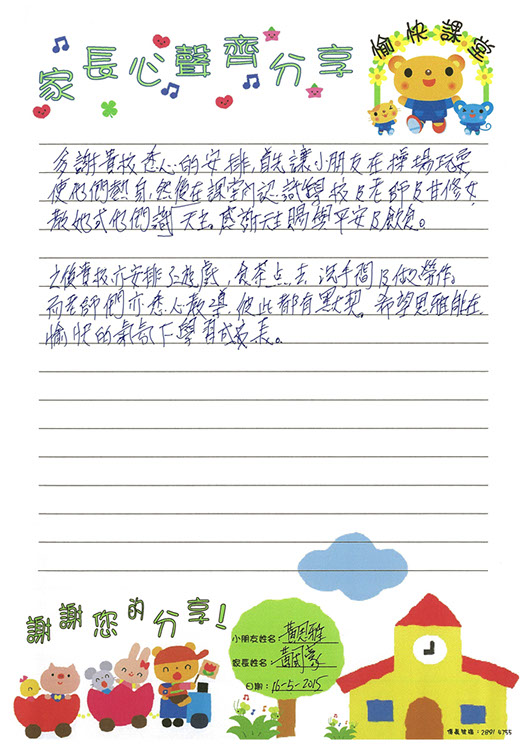 家長心聲齊分享
愉快課堂
多謝貴校悉心的安排，首先讓小朋友在操場玩耍，
使他們熱身，然後在課室內認識學校及老師及甘修女，
教她或他們謝天主，感謝天主賜與平安及飲食。
之後貴校亦安排了遊戲，食茶点，去洗手間及做勞作。
而老師們亦悉心教導，彼此都有默契。希望思雅能在
愉快的氣氛下學習成長。
謝謝您的分享！
小朋友姓名：黃思雅
家長姓名：黃
日期：16-5-2015
傳真號碼：2891 4755